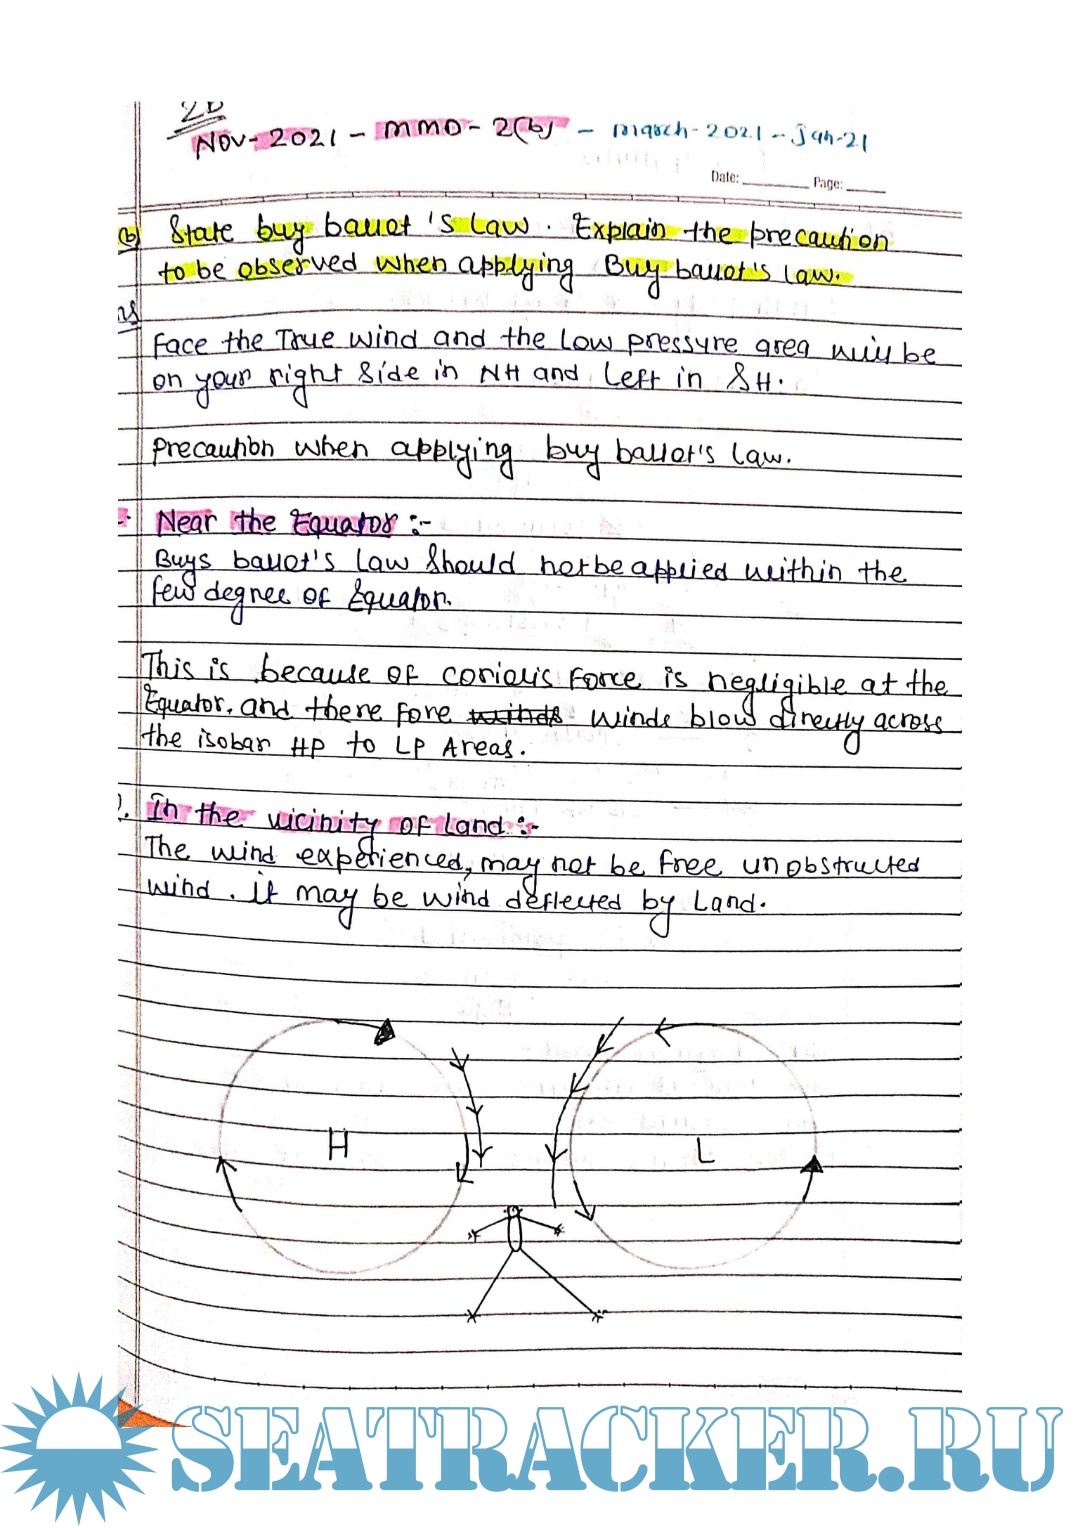 2b
Nov-2021 - MMD - 2(b) - march-2021 - Jan-21
Date: ________ Page: _____
(b) State buy ballot's Law. Explain the precaution
to be observed when applying Buy ballot's law.
Face the True wind and the low pressure area will be
on your right side in NH and Left in SH.
Precaution when applying buy ballot's law.
Near the Equator :-
Buys ballot's law should not be applied within the
few degree of Equator.
This is because of coriolis Force is negligible at the
Equator. and there fore winds winds blow directly across
the isobar HP to LP Areas.
2. In the vicinity of land :-
The wind experienced, may not be free unobstructed
wind. it may be wind deflected by Land.
H
L
SEATRACKER.RU